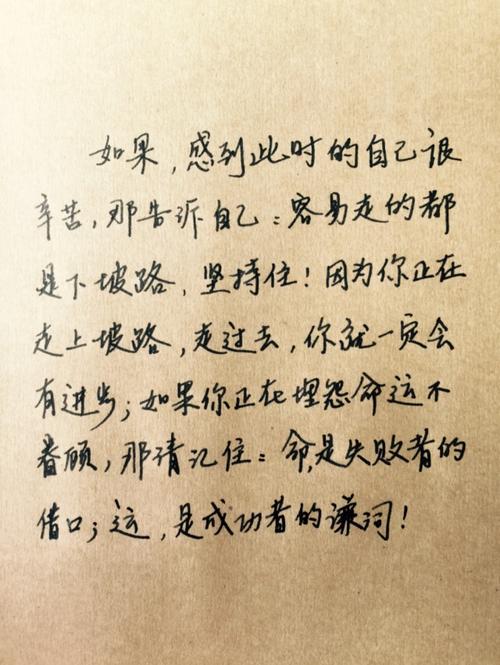 如果,感到此时的自己很
辛苦,那告诉自己:容易走的都
是下坡路,坚持住!因为你正在
走上坡路,走过去,你就一定会
有进步;如果你正在埋怨命运不
眷顾,那请记住:命,是失败者的
借口;运,是成功者的谦词!